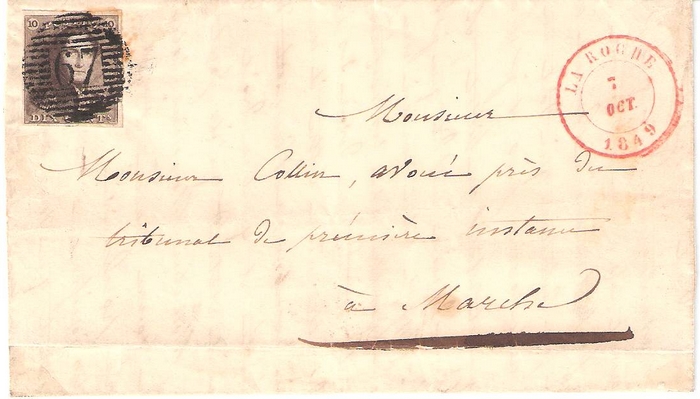 10 10
67
DIX CENTS
LA ROCHE
7
OCT.
1849
Monsieur
Monsieur Collin, avoué près du
tribunal de première instance
à Marche